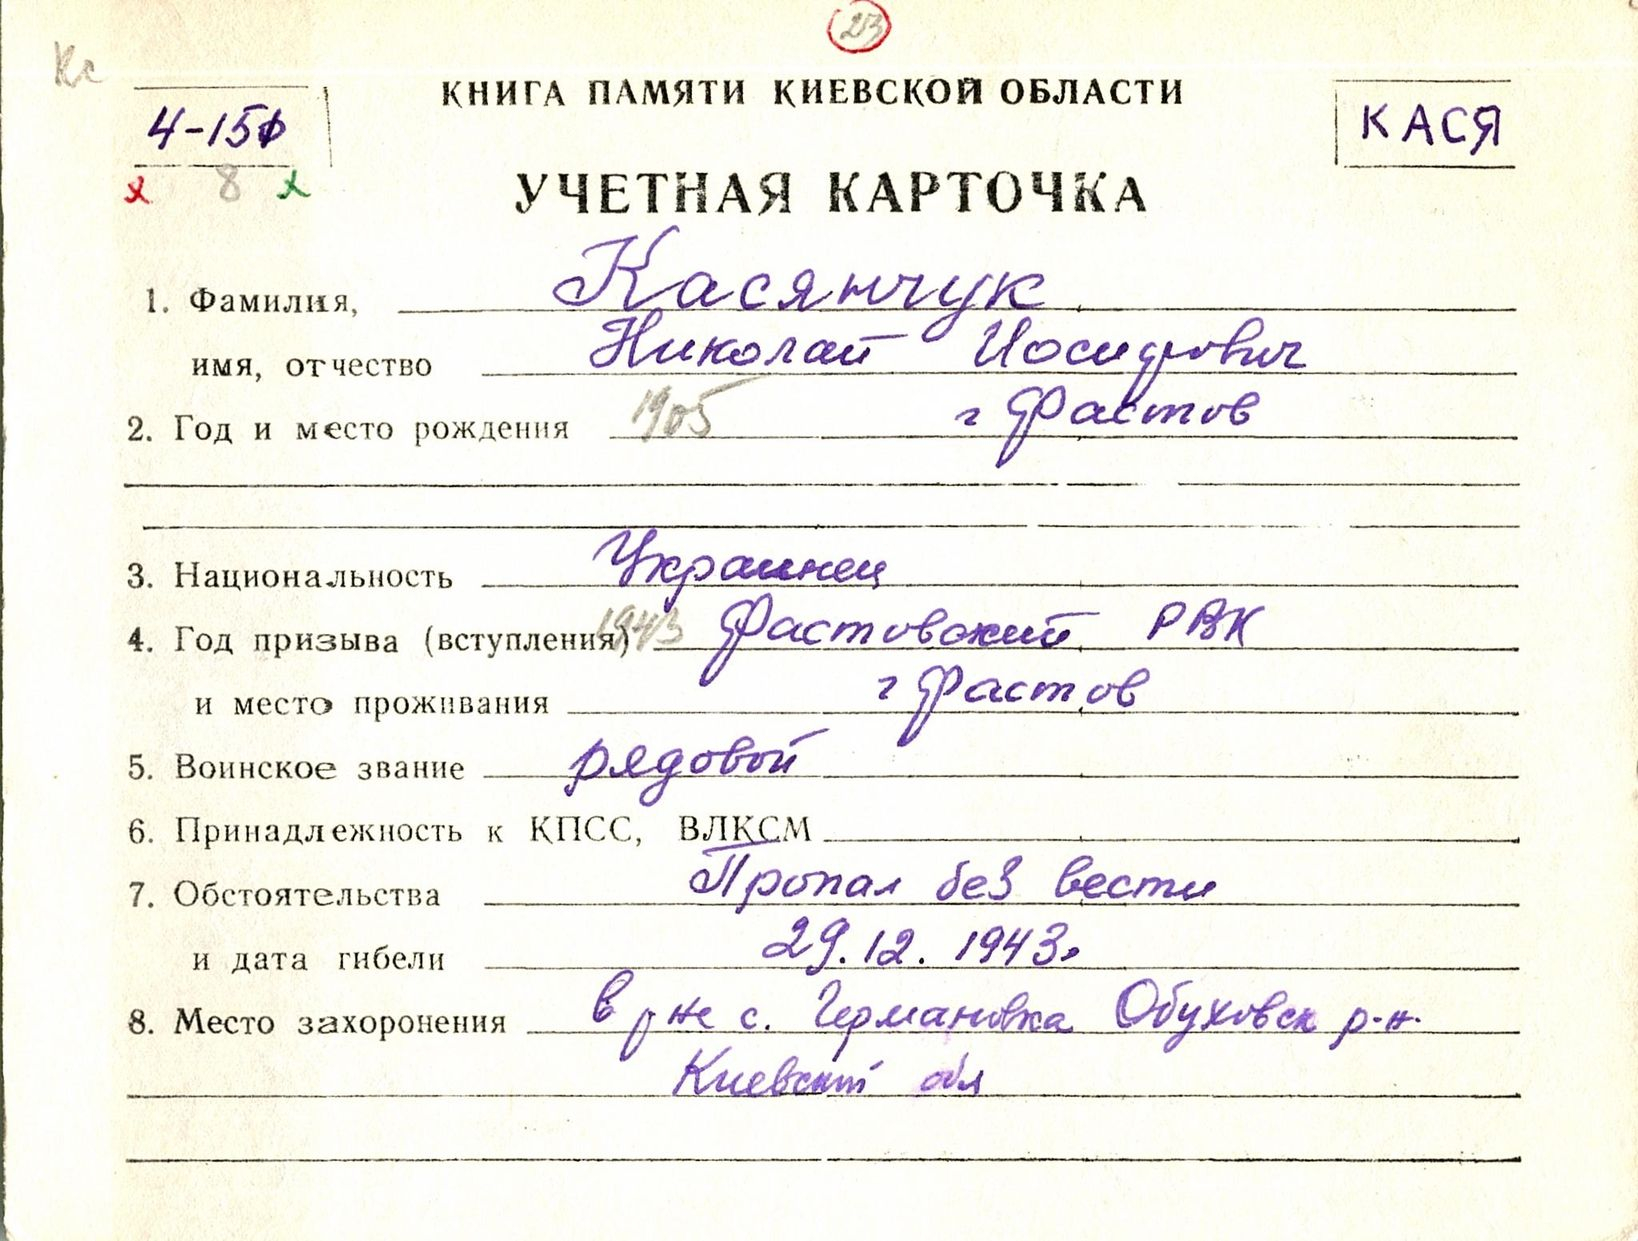 23
Кс
КНИГА ПАМЯТИ КИЕВСКОЙ ОБЛАСТИ
4-15ф
КАСЯ
х 8 х
УЧЕТНАЯ КАРТОЧКА
1. Фамилия, Касянчук
имя, отчество Николай Иосифович
2. Год и место рождения 1905 г Фастов
3. Национальность Украинец
4. Год призыва (вступления) 1943 Фастовский РВК
и место проживания г Фастов
5. Воинское звание рядовой
6. Принадлежность к КПСС, ВЛКСМ
7. Обстоятельства Пропал без вести
и дата гибели 29.12.1943.
8. Место захоронения в р-не с. Германовка Обуховск р-н.
Киевской обл